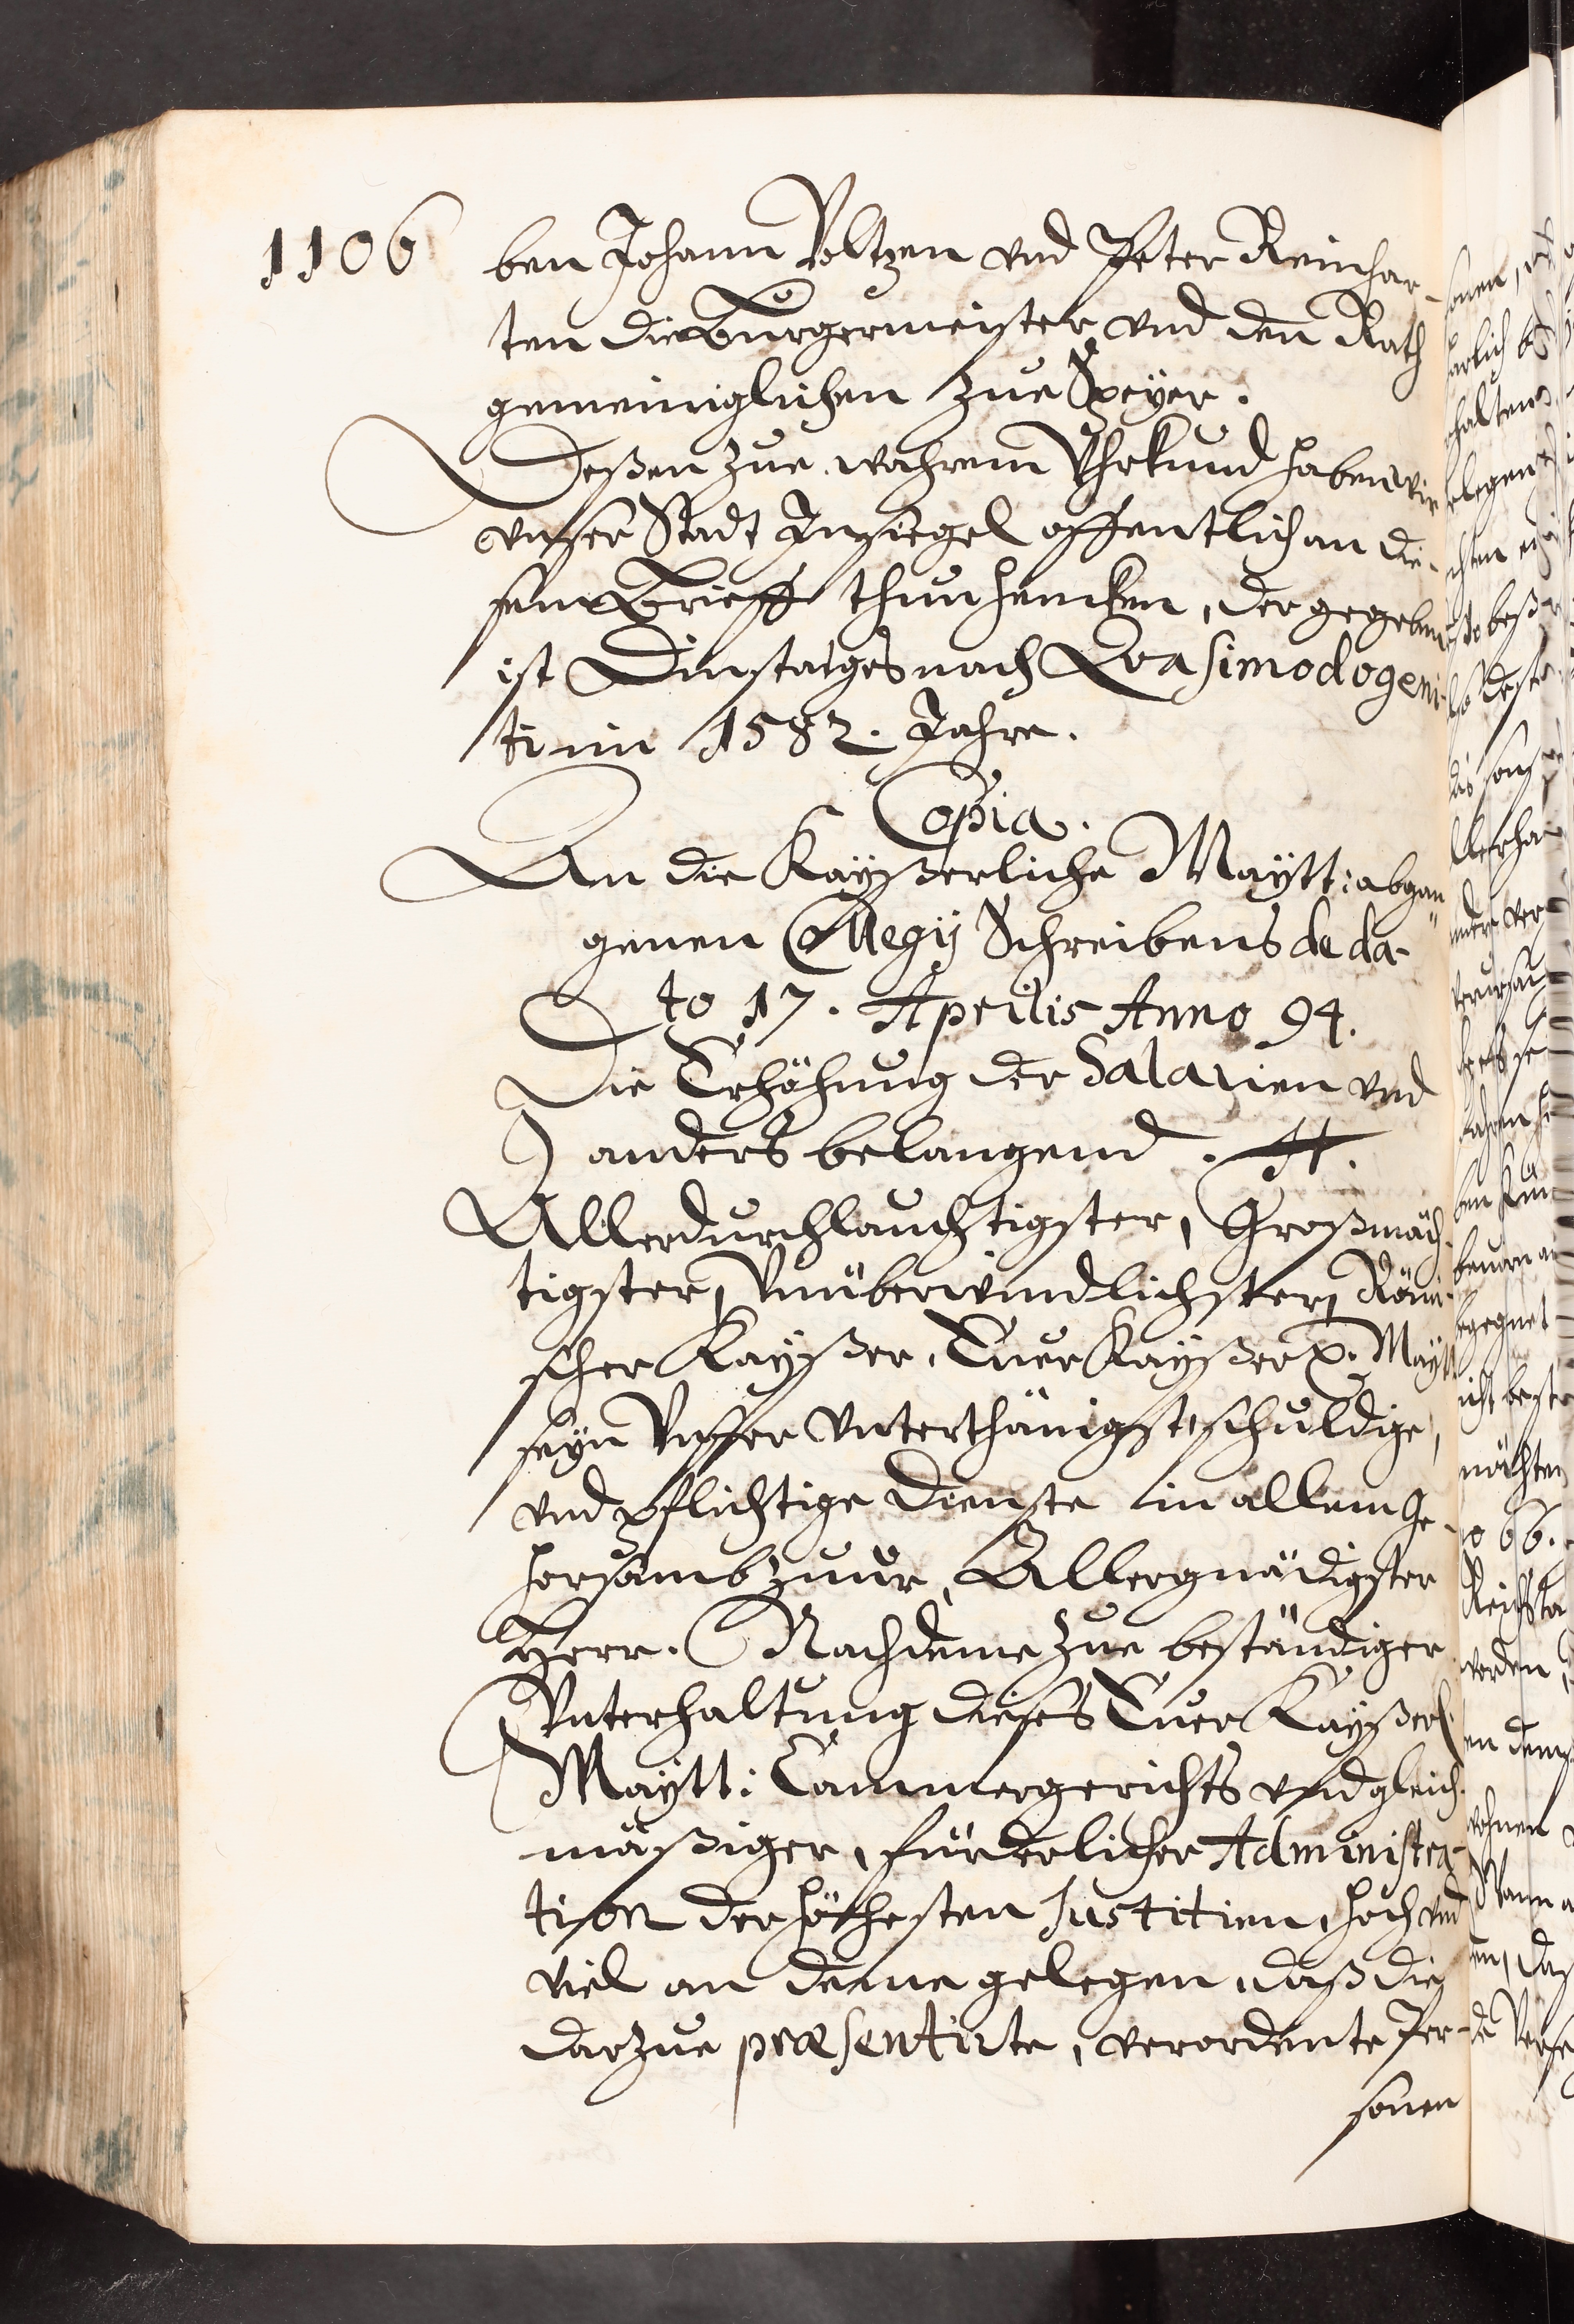 1106
ben Johann Voltzen vnd Peter Reinhar-
ten die Burgermeister vnd den Rath
gemeiniglichen zue Speyer.
Deßen zue wahrem Vhrkund haben wir
vnser Stadt Insiegel offentlich an die-
sem Brieff thun hencken, der gegeben
ist Dinstages nach Quasimodogeni-
ti im 1582. Jahre.
Copia.
An die Kayßerliche Maytt: abgan
genen Collegij Schreibens de da-
to 17. Aprilis Anno 94.
Die Erhöhung der Salarien vnd
anders belangend.
Allerdurchlauchtigster, Großmäch-
tigster, Vnüberwindlichster, Römi-
scher Kayßer, Euer Kayßer. Maytt
seyn Vnsser vnterthänigst, schuldige,
vnd pflichtige dienste in allem Ge-
horsamb zuuor, Allergnädigster
Herr. Nachdeme zue beständiger
Vnterhaltung dieses Euer Kayßerl.
Maytt: Cammergerichts vnd gleich-
mäßiger, fürderlicher Administra-
tion der höchesten Justitien, hoch vnd
viel an deme gelegen, daß die
darzue præsentirte, verordente Per-
sonen